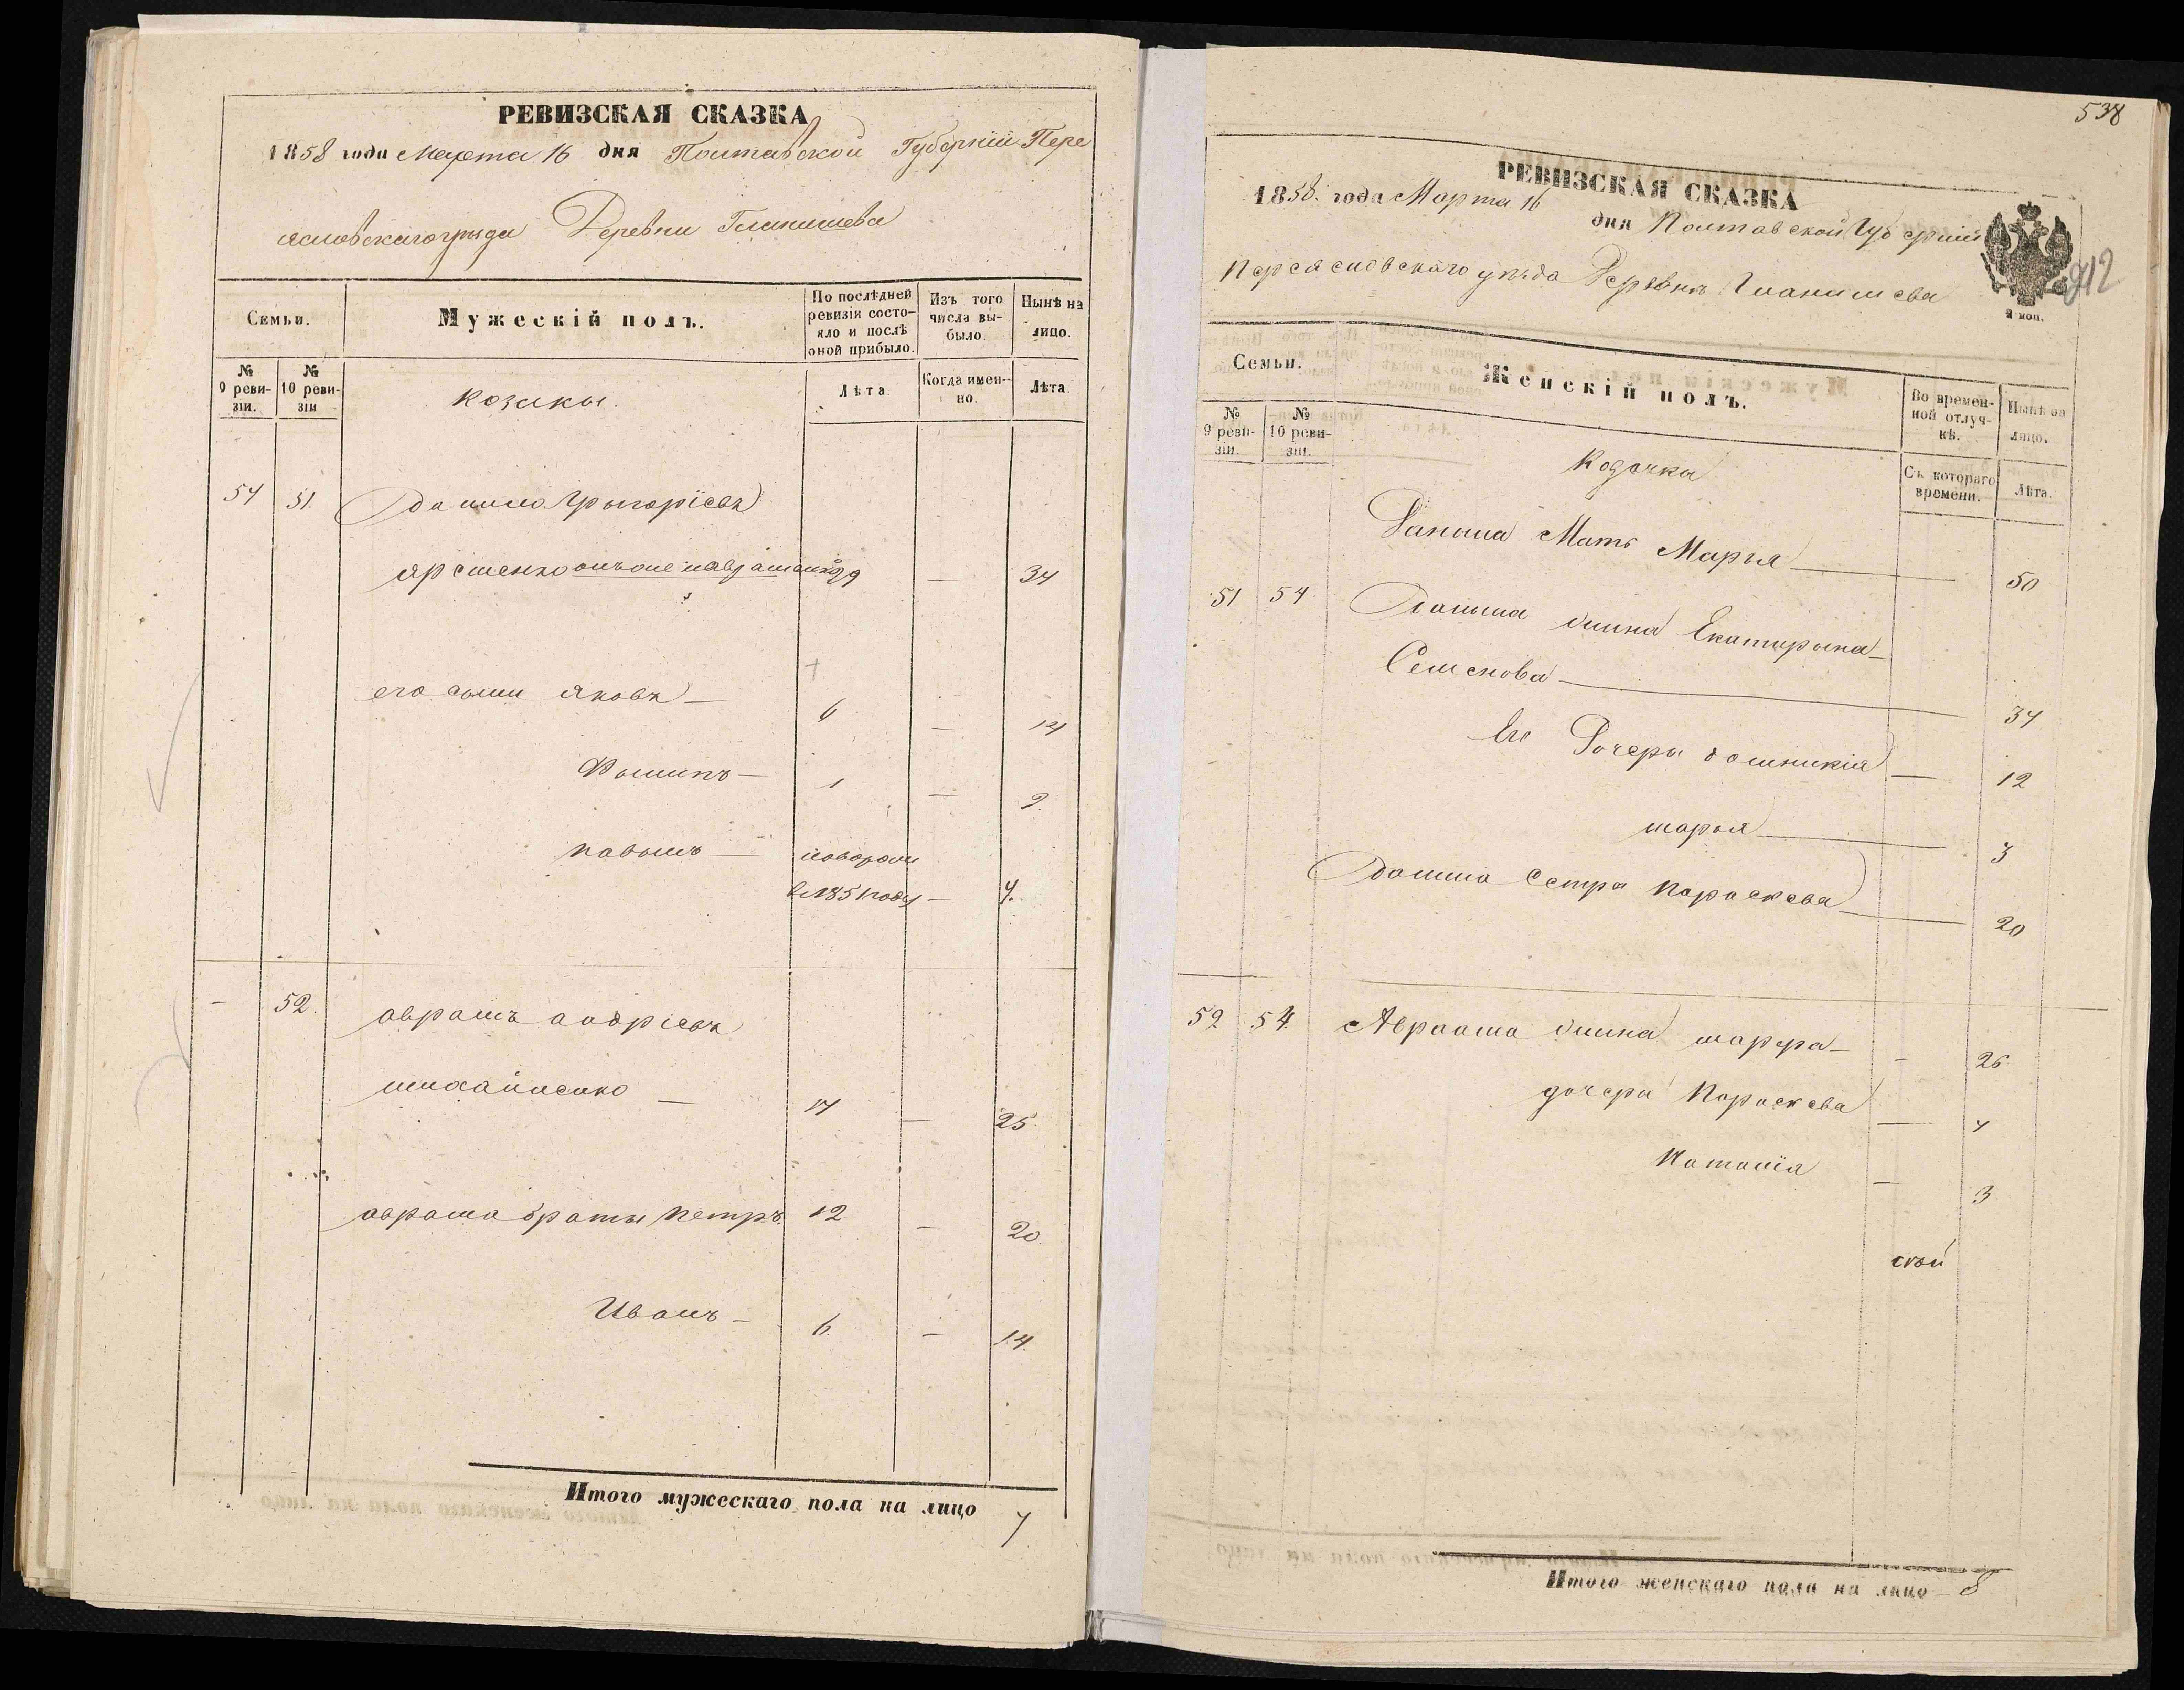 РЕВИЗСКАЯ СКАЗКА
1858 года Марта 16 дня Полтавской Губерніи Пере
яславскаго уѣзда Деревни Гланишева
Семьи.
Мужескій полъ.
По послѣдней ревизіи состояло и послѣ оной прибыло.
Изъ того числа выбыло.
Нынѣ на лицо.
№ 9 ревизіи.
№ 10 ревизіи
Козаки.
Лѣта
Когда именно.
Лѣта.
54 51. Данило Григоріевъ
29 — 34
его сыни Яковъ — 6 — 14
Филипъ — 1 — 9.
Павелъ —
в 1851 году — 4.
— 52. Аврамъ Андріевъ
Михайленко — 17 — 25
Аврама братья Петръ 12 — 20.
Иванъ — 6. — 14.
Итого мужескаго пола на лицо 7
538
РЕВИЗСКАЯ СКАЗКА
1858. года Марта 16 дня Полтавской Губерніи
Переясловскаго уѣзда Деревнѣ Гланишева
912
2 коп.
Семьи.
Женскій полъ.
Во временной отлучкѣ.
Нынѣ на лицо.
№ 9 ревизіи.
№ 10 ревизіи.
Козачки
Съ котораго времени.
Лѣта.
Данила Мать Марья — 50
51 54 Данила жина Екатирина
Семенова — 34
Ее Дочеры Домникія — 12
Марья — 3
Данила Сестра Параскева — 20
52 54. Авраама жина Марфа — 26
дочери Параскева — 4
Наталія — 3
Итого женскаго пола на лицо 8